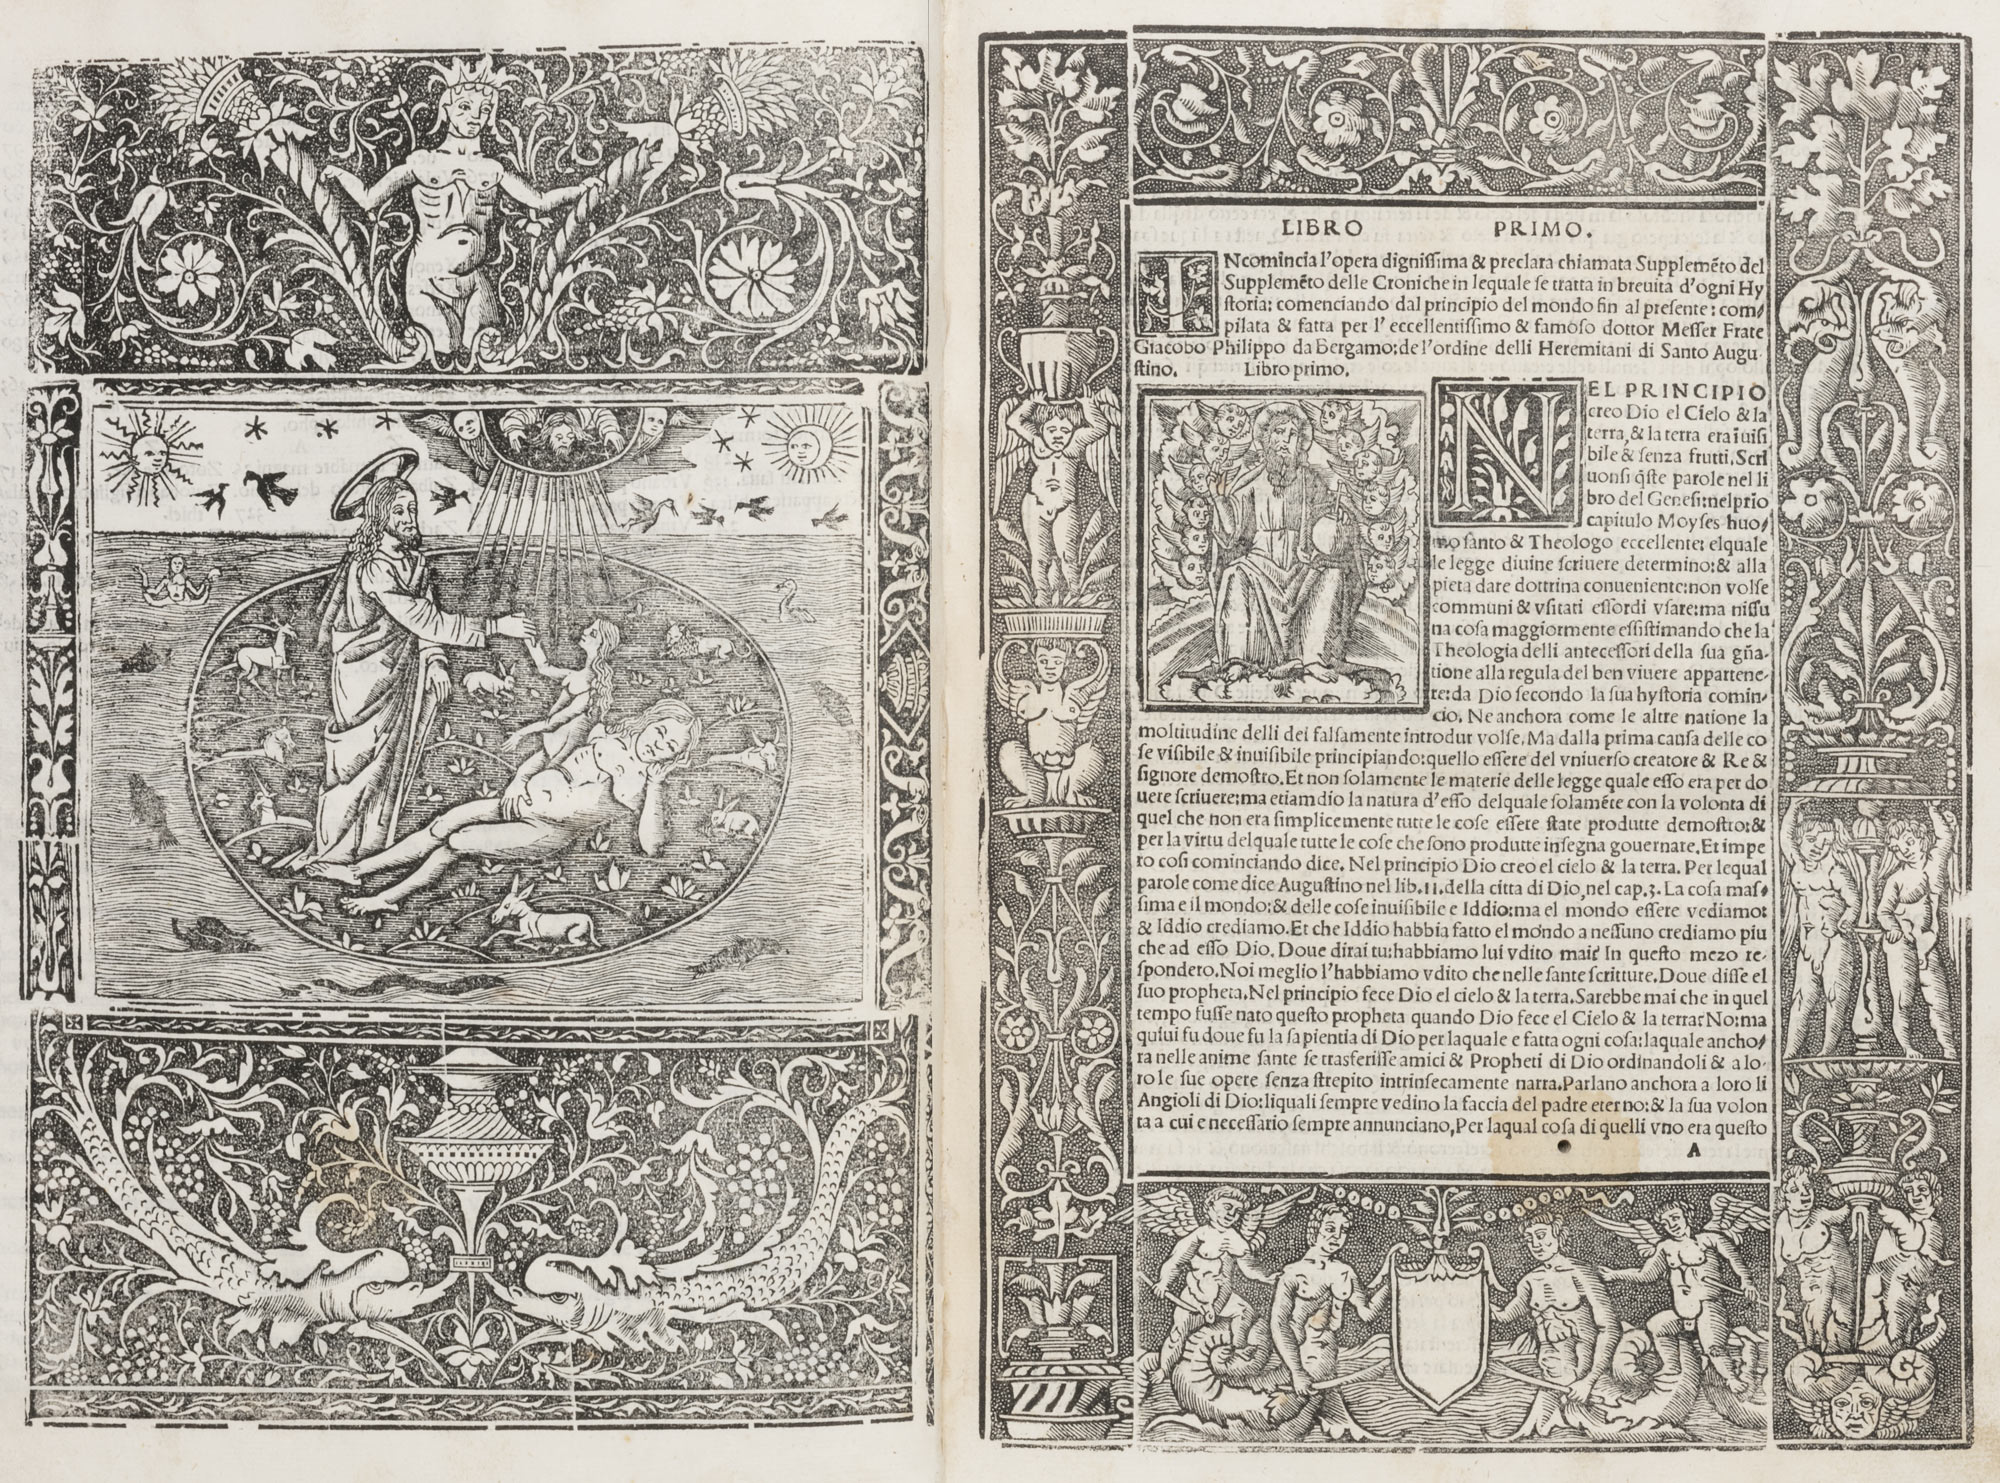 LIBRO PRIMO.
INcomincia l'opera dignissima & preclara chiamata Supplemēto del
Supplemēto delle Croniche in lequale se tratta in breuita d'ogni Hy
storia: comenciando dal principio del mondo fin al presente: com/
pilata & fatta per l' eccellentissimo & famoso dottor Messer Frate
Giacobo Philippo da Bergamo: de l'ordine delli Heremitani di Santo Augu-
stino. Libro primo.
NEL PRINCIPIO
creo Dio el Cielo & la
terra, & la terra era ĩuisi
bile & senza frutti. Scri
uonsi q̃ste parole nel li
bro del Genesi: nel prĩo
capitulo Moyses huo/
mo santo & Theologo eccellente: elquale
le legge diuine scriuere determino: & alla
pieta dare dottrina conueniente: non volse
communi & vsitati essordi vsare: ma nissu
na cosa maggiormente essistimando che la
Theologia delli antecessori della sua gña-
tione alla regula del ben viuere appartene-
re: da Dio secondo la sua hystoria comin-
cio. Ne anchora come le altre natione la
moltitudine delli dei falsamente introdur volse. Ma dalla prima causa delle co
se visibile & inuisibile principiando: quello essere del vniuerso creatore & Re &
signore demostro. Et non solamente le materie delle legge quale esso era per do
uere scriuere: ma etiam dio la natura d'esso delquale solamēte con la volonta di
quel che non era simplicemente tutte le cose essere state produtte demostro: &
per la virtu delquale tutte le cose che sono produtte insegna gouernare. Et impe
ro cosi cominciando dice. Nel principio Dio creo el cielo & la terra. Per lequal
parole come dice Augustino nel lib. 11. della citta di Dio, nel cap. 3. La cosa mas-
sima e il mondo: & delle cose inuisibile e Iddio: ma el mondo essere vediamo:
& Iddio crediamo. Et che Iddio habbia fatto el mondo a nessuno crediamo piu
che ad esso Dio. Doue dirai tu: habbiamo lui vdito mai? In questo mezo re-
spondero. Noi meglio l'habbiamo vdito che nelle sante scritture. Doue disse el
suo propheta. Nel principio fece Dio el cielo & la terra. Sarebbe mai che in quel
tempo fusse nato questo propheta quando Dio fece el Cielo & la terra? No: ma
quiui fu doue fu la sapientia di Dio per laquale e fatta ogni cosa: laquale ancho/
ra nelle anime sante se trasferisse amici & Propheti di Dio ordinandoli & a lo-
ro le sue opere senza strepito intrinsecamente narra. Parlano anchora a loro li
Angioli di Dio: liquali sempre vedino la faccia del padre eterno: & la sua volon
ta a cui e necessario sempre annunciano. Per laqual cosa di quelli vno era questo
A